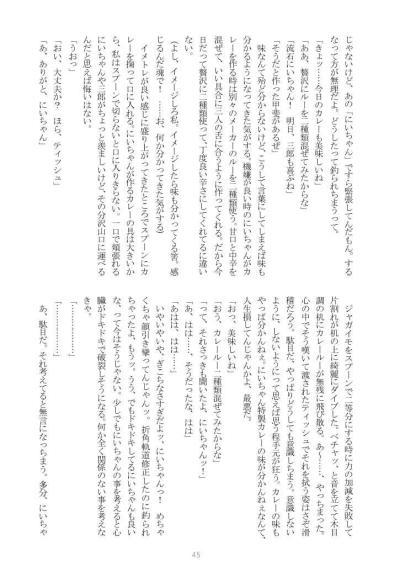 じゃないけど、あの「にいちゃん」ですら緊張してんだもん。する
なって方が無理だよ。どうしたって釣られちまうって。
「きょッ……今日のカレーも美味しいね」
「ああ、贅沢にルーを二種類混ぜてみたからな」
「流石にいちゃん！　明日、三郎も喜ぶね」
「そうだと作った甲斐があるぜ」
　味なんて殆ど分からないけど、こうして言葉にしてしまえば味も
分かるようになってきた気がする。機嫌が良い時のにいちゃんがカ
レーを作る時は別々のメーカーのルーを二種類使う。甘口と中辛を
混ぜて、いい具合に三人の舌に合うように作ってくれる。だから今
日だって贅沢に二種類使って、丁度良い辛さにしてくれてるに違い
ない。
（よし、イメージしろ私。イメージしたら味も分かってくる筈。感
じるんだ魂で！　……お、何か分かってきた気がする）
　イメトレが良い感じに盛り上がってきたところでスプーンにカ
レーを掬って口に入れる。にいちゃんが作るカレーの具は大きいか
ら、私はスプーンで切らないと口に入りきらない。一口で頬張れる
にいちゃんや三郎がちょっと羨ましいけど、その分沢山口に運べる
んだと思えば悔いはない。
「うおっ」
「おい、大丈夫か？　ほら、ティッシュ」
「あ、ありがと、にいちゃん」
　ジャガイモをスプーンで二等分にする時に力の加減を失敗して
片割れが机の上に綺麗にダイブした。ベチャッ、と音を立てて木目
調の机にカレールーが無残に飛び散る。あ～……、やっちまった。
心の中でそう嘆いて渡されたティッシュでそれを拭う姿はさぞ滑
稽だろう。駄目だ。やっぱりどうしても意識しちまう。意識しない
ように、しないようにって思えば思う程手元が狂う。カレーの味も
やっぱ分かんねぇ。にいちゃん特製カレーの味が分かんねぇなんて、
人生損してんじゃんかよ、最悪だ。
「おっ、美味しいね」
「おう、カレールー二種類混ぜてみたからな」
「って、それさっきも聞いたよ、にいちゃんッ！」
「あ、はは……、そうだったな、はは」
「あはは、はは……」
　いやいやいや、ぎこちなさすぎだよッ、にいちゃんっ！　めちゃ
くちゃ顔引き攣ってんじゃんッ。折角軌道修正したのに釣られ
ちゃったよ、もうッ。うえ、でもドキドキしてるにいちゃんも良い
な、って今はそうじゃない。少しでもにいちゃんの事を考えると心
臓がドキドキで破裂しそうになる。何か全く関係のない事を考えな
きゃ。
「…………」
「…………」
　あ、駄目だ。それ考えてると無言になっちまう。多分、にいちゃ
45